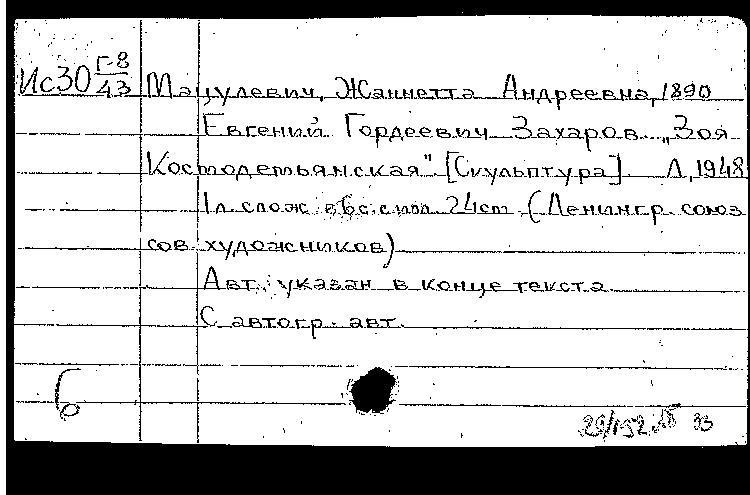 Ис30 Г-8/43 Мацулевич, Жаннетта Андреевна, 1890
Евгений Гордеевич Захаров. „Зоя
Космодемьянская" [Скульптура]. Л, 1948
1 л. слож. в 6 с. с илл. 24 cm. (Ленингр. союз
сов. художников)
Авт. указан в конце текста
С автогр. авт.
б